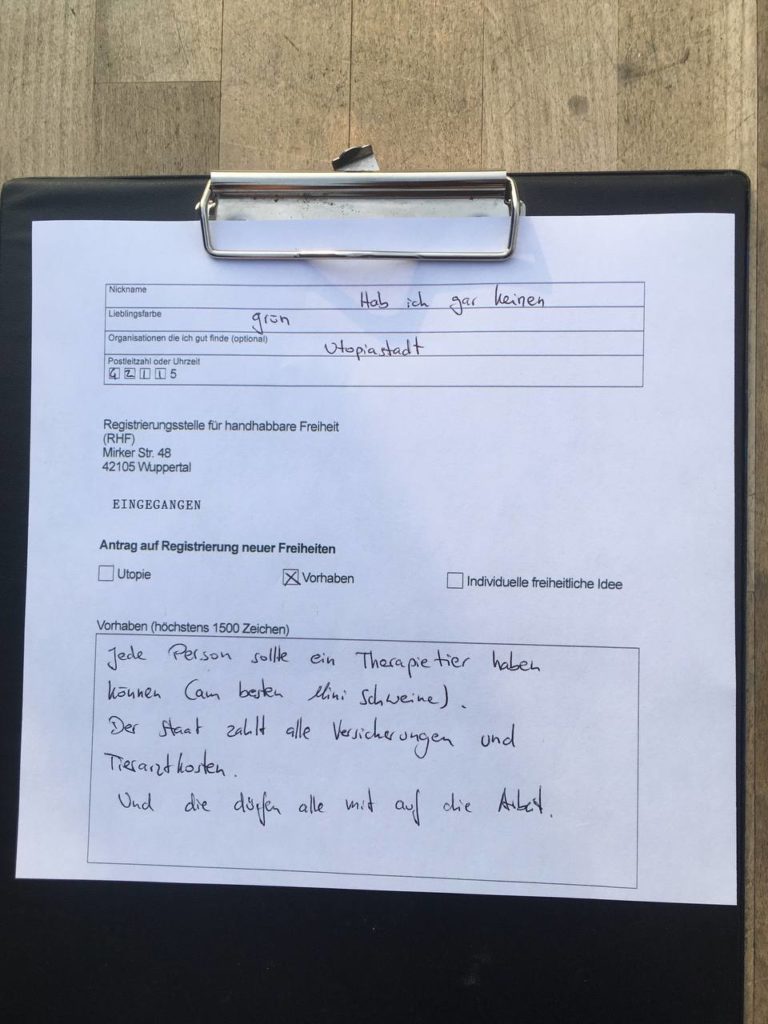 Nickname Hab ich gar keinen
Lieblingsfarbe grün
Organisationen die ich gut finde (optional) Utopiastadt
Postleitzahl oder Uhrzeit
42115
Registrierungsstelle für handhabbare Freiheit
(RHF)
Mirker Str. 48
42105 Wuppertal
EINGEGANGEN
Antrag auf Registrierung neuer Freiheiten
Utopie Vorhaben Individuelle freiheitliche Idee
Vorhaben (höchstens 1500 Zeichen)
Jede Person sollte ein Therapietier haben
können (am besten Mini Schweine).
Der Staat zahlt alle Versicherungen und
Tierarztkosten.
Und die dürfen alle mit auf die Arbeit.